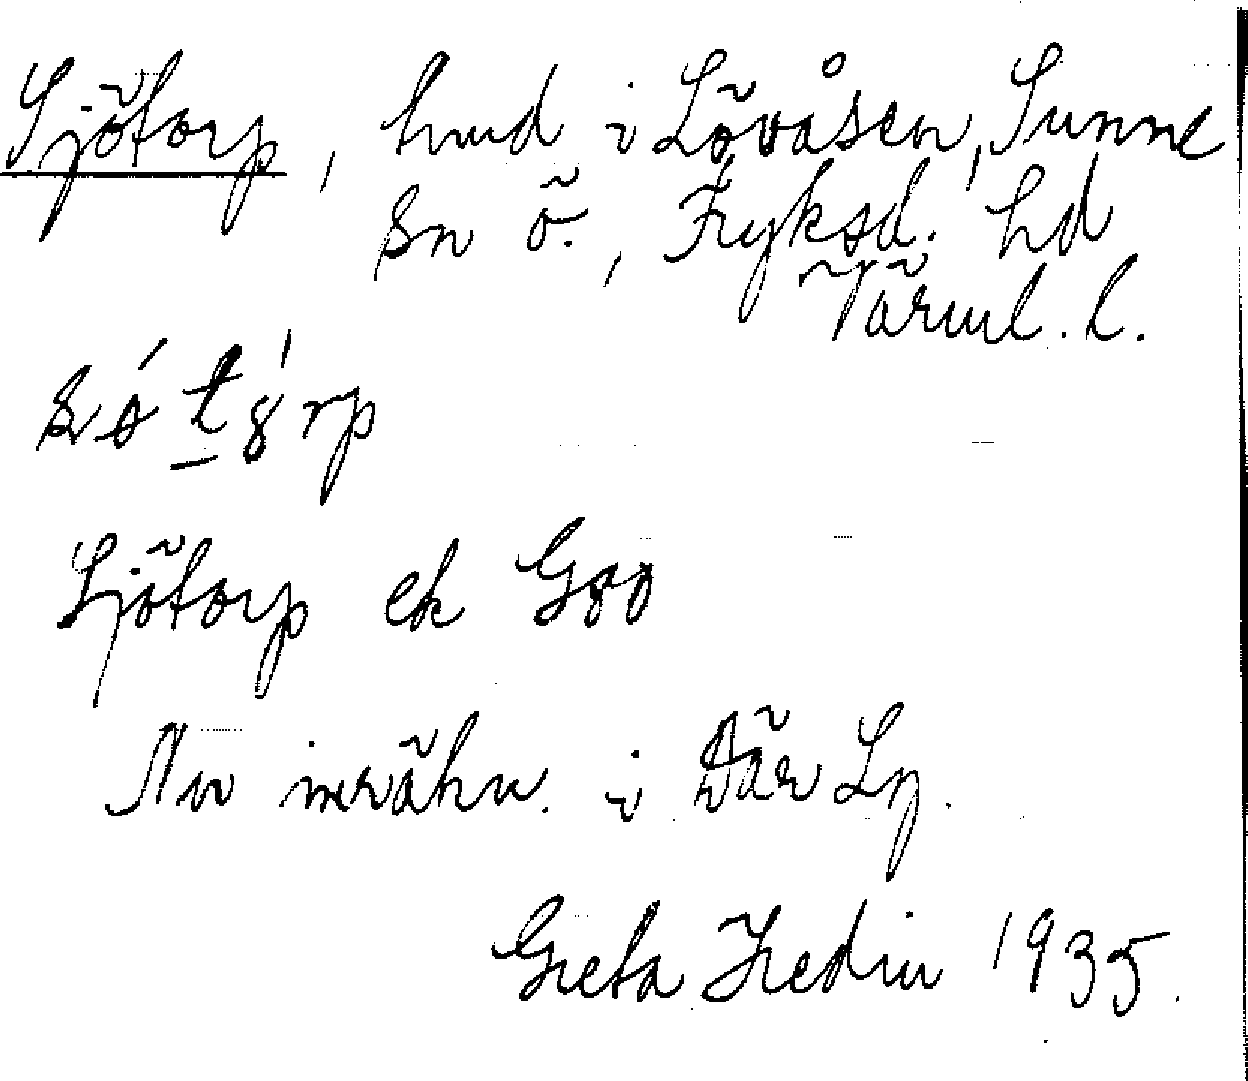 Sjötorp, hmd i Lövåsen, Sunne
sn ö., Fryksd. hd
Värml. l.
Sjötorp ek Goo
Nu i Där Ly.
Greta Hedin 1935.